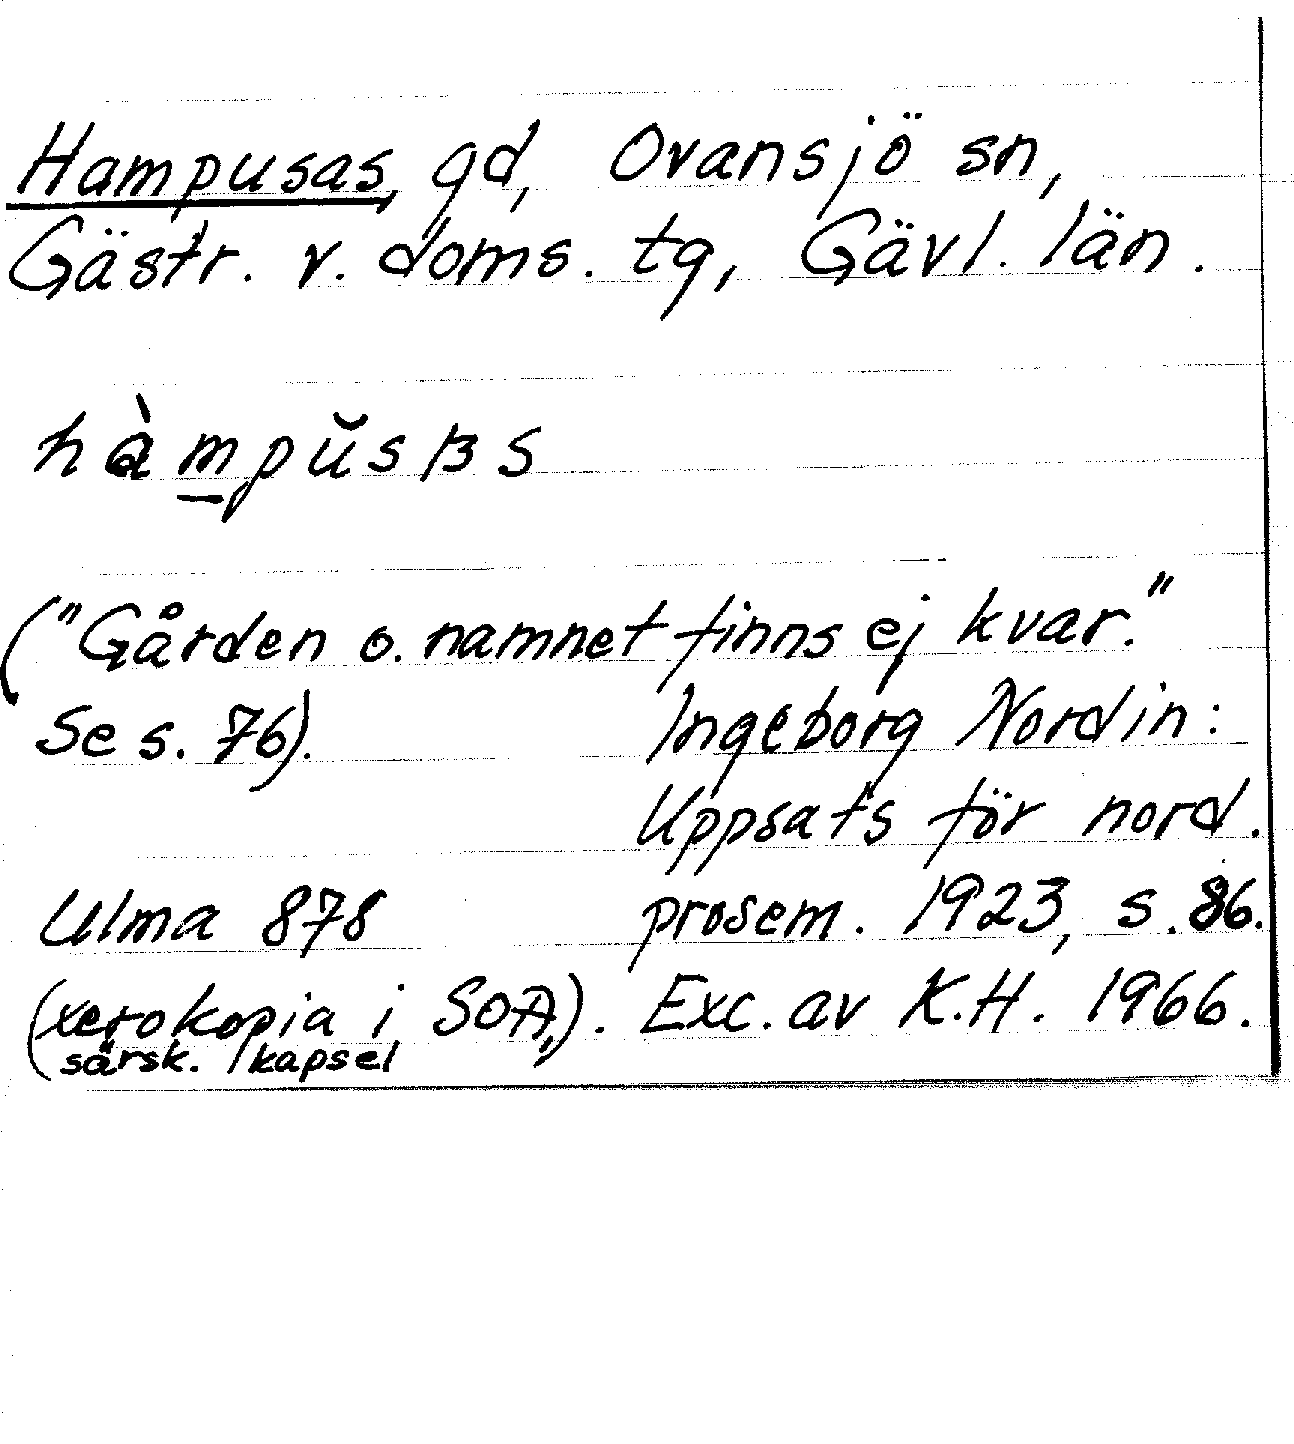 Hampusas, gd, Ovansjö sn,
Gästr. v. doms. tg, Gävl. län.
hàmpŭsɞs
("Gården o. namnet finns ej kvar."
Se s. 76). Ingeborg Nordin:
Uppsats för nord.
Ulma 878 prosem. 1923, s. 86.
(xerokopia i SOA,). Exc. av K.H. 1966.
särsk. kapsel